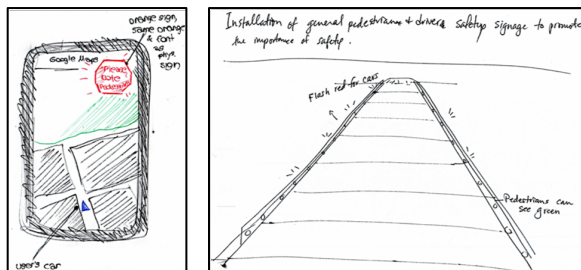 orange sign,
same orange
& font
as
phys.
sign
Google Maps
Please
Note
Pedestrians
user's car
Installation of general pedestrians & drivers safety signage to promote
the importance of safety.
Flash red for cars
Pedestrians can
see green